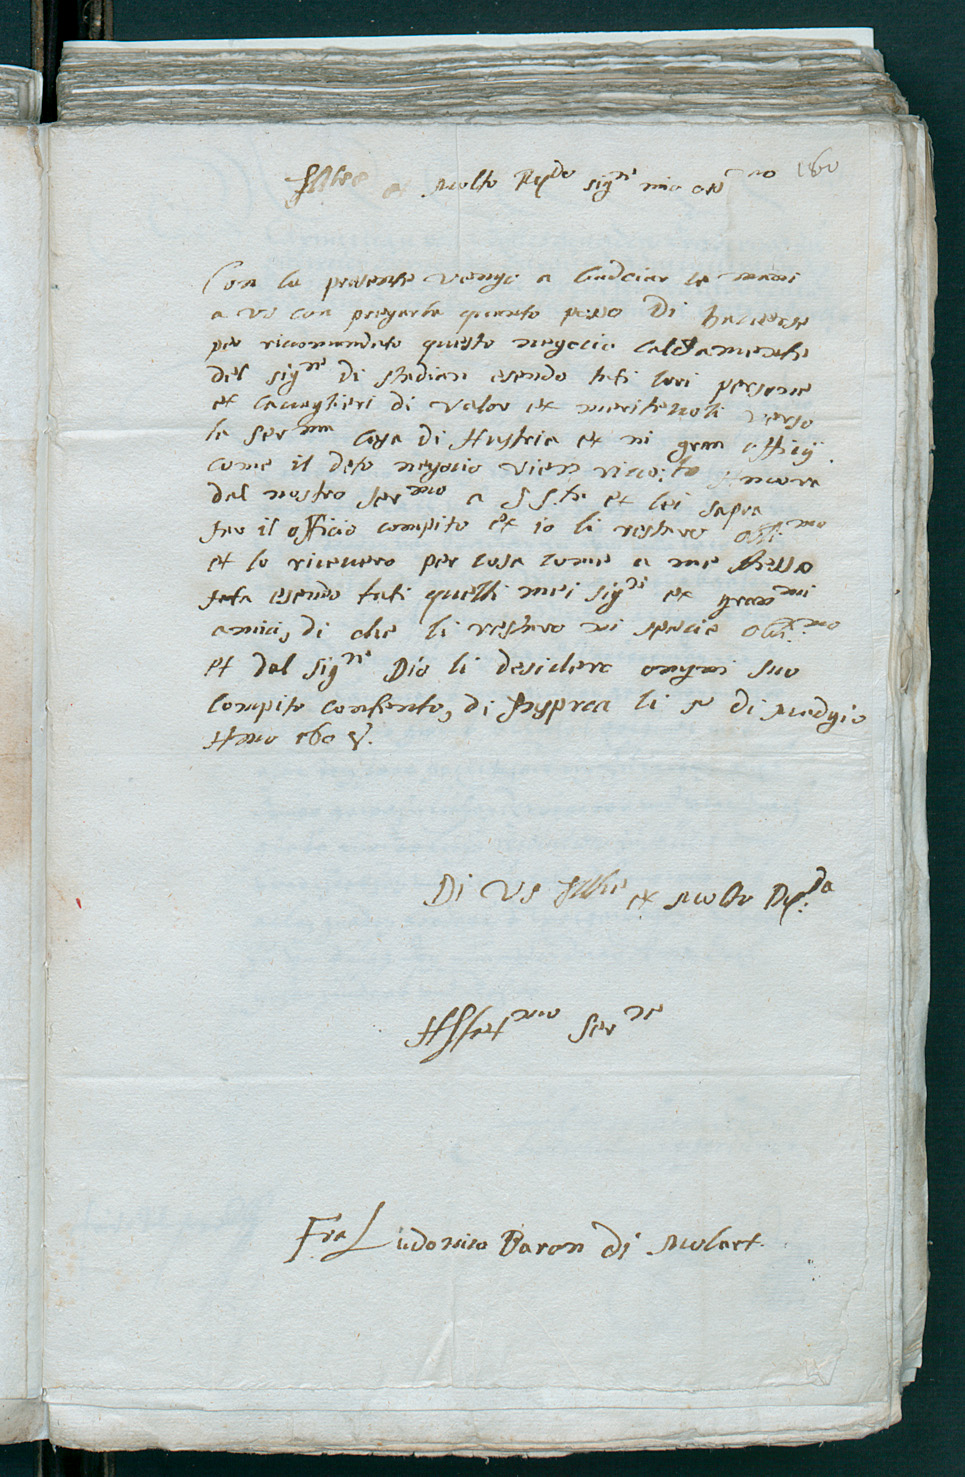 Illre et Molto Rdo sigre mio ossmo 160
Con la presente vengo a basciar le mani
a VS con pregarla quanto posso di haverse
per ricomandato questo negocio caldamente
del sigre di stadian esendo tuti lori persone
et cavaglieri di valor et meritevoli verso
la serma Casa di Austria et ni gran officij
come il deto negocio vien Ancora
dal nostro sermo a S Sta et lei sapra
far il officio compito et io li restaro obli.mo
et lo ricevero per cosa come a me stessa
fata esendo tuti quelli mei sigri et gran.mi
amici, di che li restaro ni specie obli.mo
et dal sigre Dio li desidera ongni suo
compito contento, di li di Madgio
Anno 160
Di VS Illre et Molto Rda
Affetmo serre
Fra Ludovico Baron di Molart.